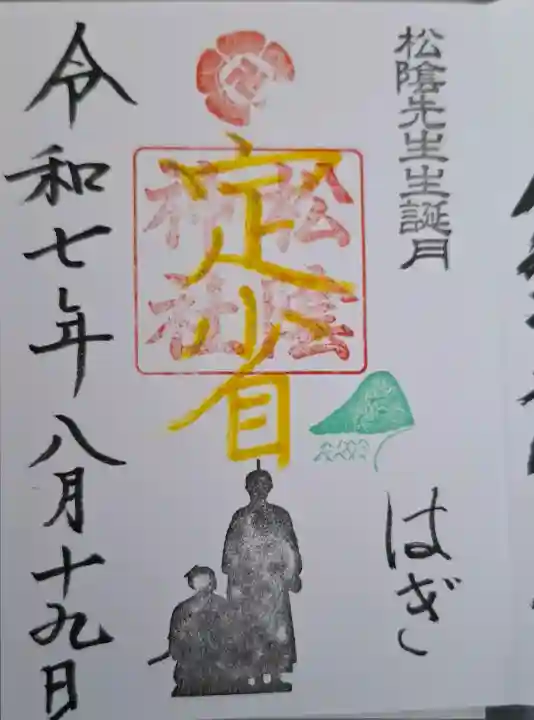 松陰先生生誕月
はぎ
松陰
神社
定省
令和七年八月十九日